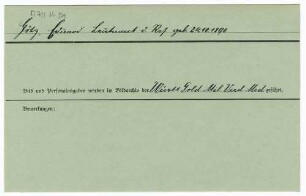 Götz, Eduard Leutnant d. Res. geb. 24.10.1890
Bild und Personalangaben werden im Bildarchiv der Württ Gold. Mil. Verd. Med geführt.
Bemerkungen: